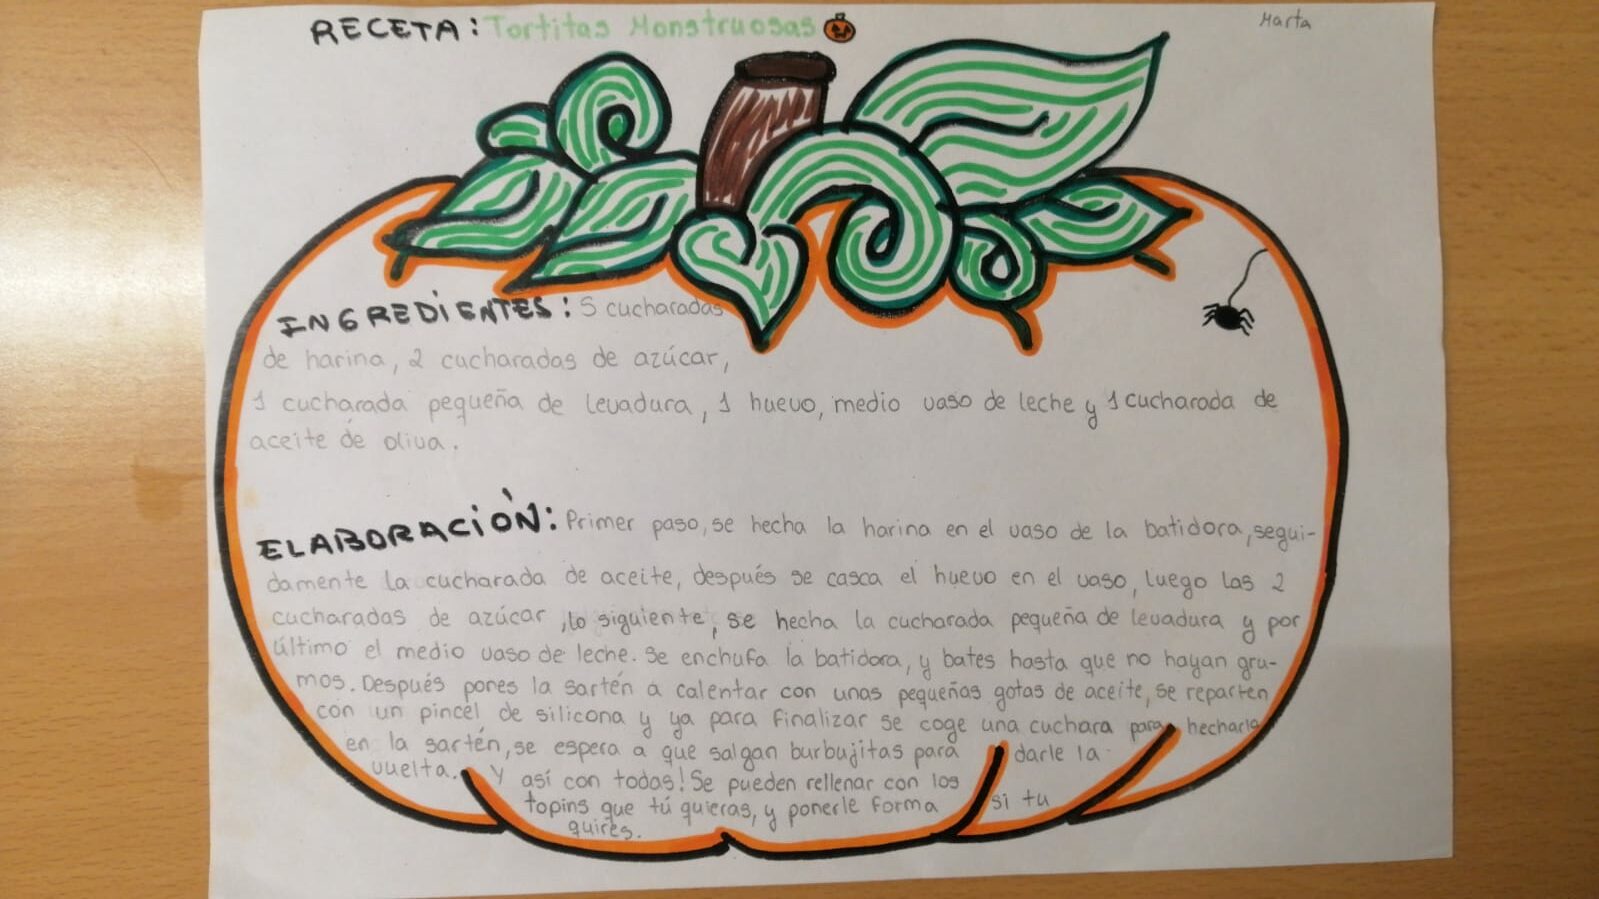 RECETA: Tortitas Monstruosas
Marta
INGREDIENTES: 5 cucharadas
de harina, 2 cucharadas de azúcar,
1 cucharada pequeña de levadura, 1 huevo, medio vaso de leche y 1 cucharada de
aceite de oliva.
ELABORACIÓN: Primer paso, se hecha la harina en el vaso de la batidora, segui-
damente la cucharada de aceite, después se casca el huevo en el vaso, luego las 2
cucharadas de azúcar, lo siguiente, se hecha la cucharada pequeña de levadura y por
último el medio vaso de leche. Se enchufa la batidora, y bates hasta que no hayan gru-
mos. Después pones la sartén a calentar con unas pequeñas gotas de aceite, se reparten
con un pincel de silicona y ya para finalizar se coge una cuchara para hecharla
en la sartén, se espera a que salgan burbujitas para darle la
vuelta. Y así con todas! Se pueden rellenar con los
topins que tú quieras, y ponerle forma si tu
quires.